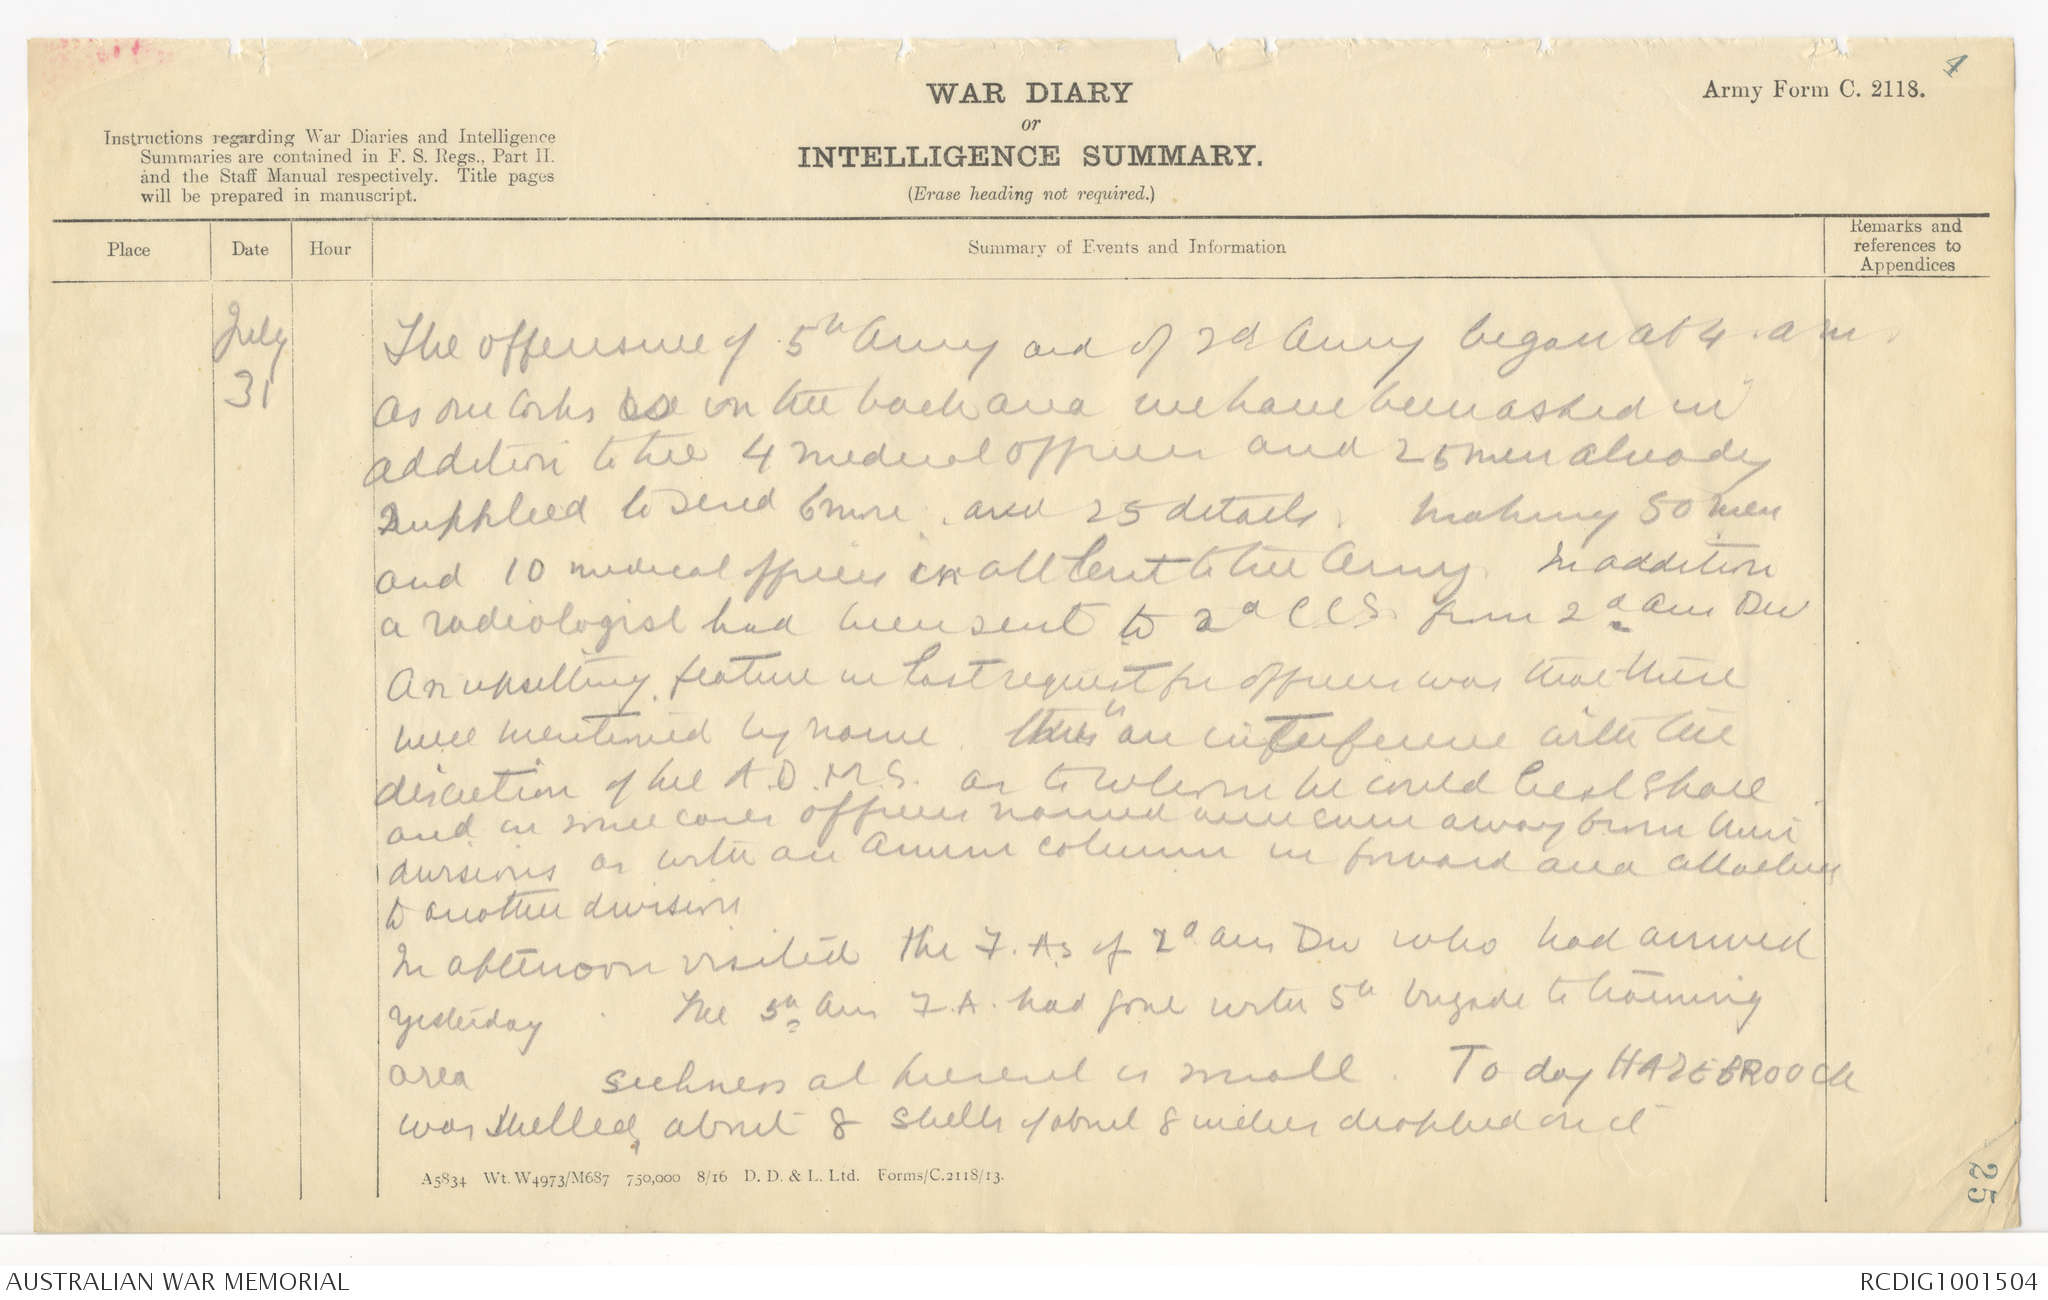 4
WAR DIARY
or
INTELLIGENCE SUMMARY.
(Erase heading not required.)
Army Form C. 2118.
Instructions regarding War Diaries and Intelligence
Summaries are contained in F. S. Regs., Part II.
and the Staff Manual respectively. Title pages
will be prepared in manuscript.
Place
Date
Hour
Summary of Events and Information
Remarks and
references to
Appendices
July
31
The offensive of 5th Army and of 2d Army began at 4. am.
As our Corks is in the back area we have been asked in
addition to the 4 medical officers and 25 men already
supplied to send 6 more and 25 details. making 50 men
and 10 medical officers in all lent to the Army. In addition
a radiologist had been sent to 2d CCS. from 2d Aus Div
An upsetting feature in last request for officers was that these
were mentioned by name. this is an interference with the
discretion of the A.D.M.S. as to whom he could best spare
and in some cases officers named were even away from their
divisions as with an Ammn column in forward area attached
to another division
In afternoon visited the F. As of 2d Aus Div who had arrived
yesterday. The 5th Aus F.A. had gone with 5th brigade to training
area sickness at present is small. To day HAZEBROOCK
was shelled, about 8 shells of about 8 inches dropped on it
A5834 Wt. W4973/M687 750,000 8/16 D. D. & L. Ltd. Forms/C.2118/13.
25
AUSTRALIAN WAR MEMORIAL
RCDIG1001504